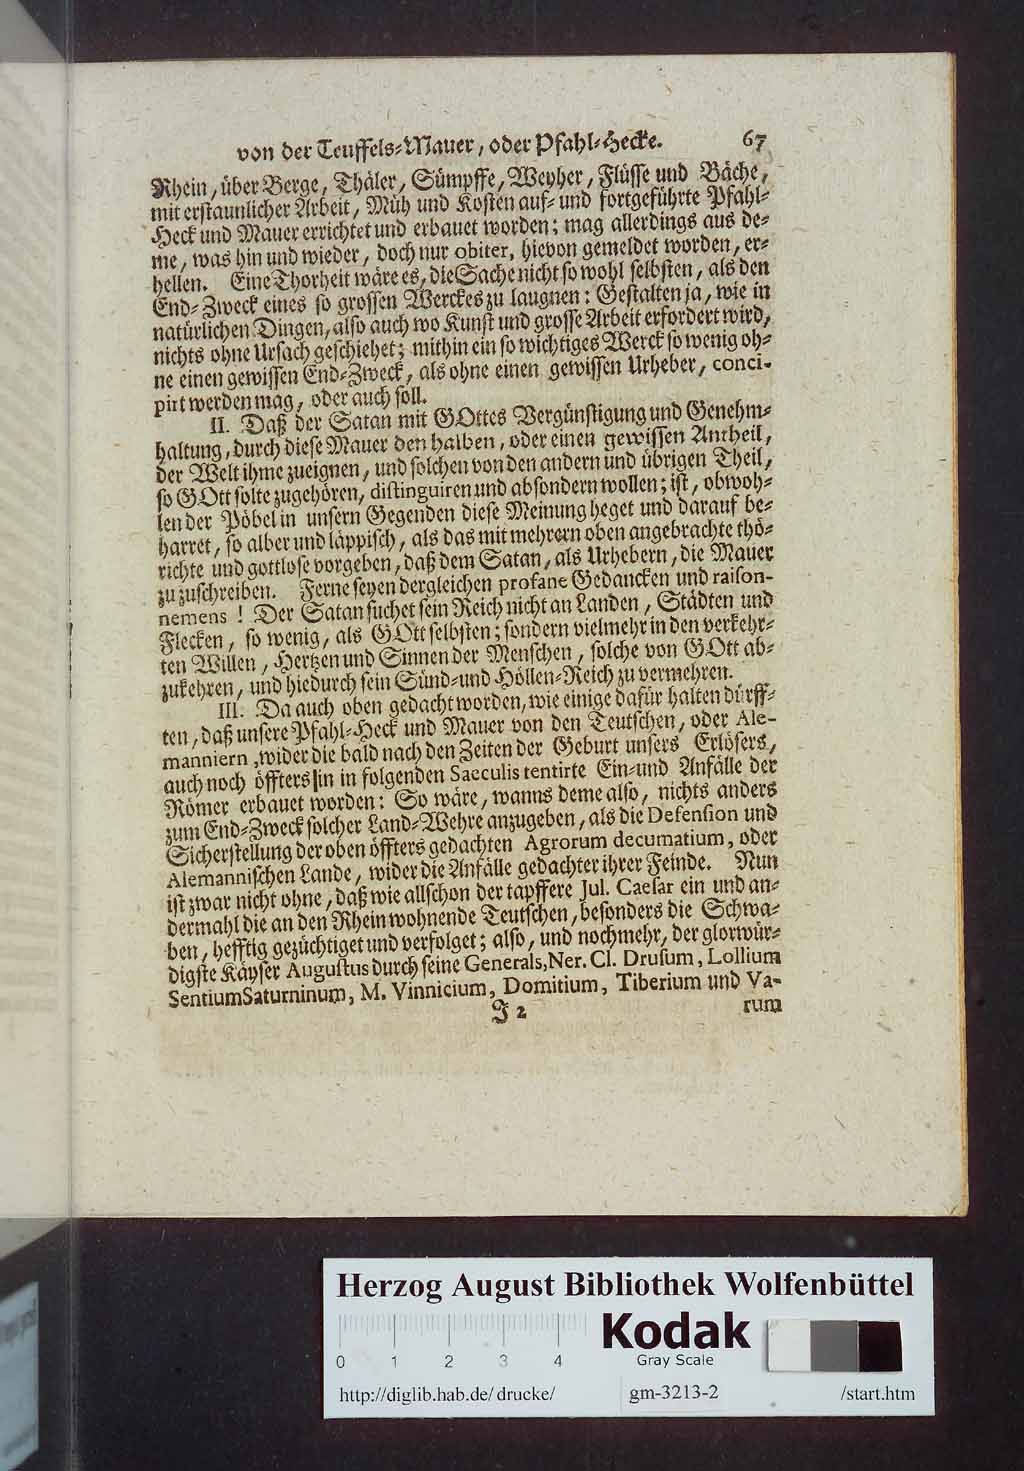 von der Teuffels-Mauer, oder Pfahl-Hecke. 67
Rhein, über Berge, Thäler, Sümpffe, Weyher, Flüsse und Bäche,
mit erstaunlicher Arbeit, Müh und Kosten auf- und fortgeführte Pfahl-
Heck und Mauer errichtet und erbauet worden; mag allerdings aus de-
me, was hin und wieder, doch nur obiter, hievon gemeldet worden, er-
hellen. Eine Thorheit wäre es, die Sache nicht so wohl selbsten, als den
End-Zweck eines so grossen Werckes zu laugnen: Gestalten ja, wie in
natürlichen Dingen, also auch wo Kunst und grosse Arbeit erfordert wird,
nichts ohne Ursach geschiehet; mithin ein so wichtiges Werck so wenig oh-
ne einen gewissen End-Zweck, als ohne einen gewissen Urheber, conci-
pirt werden mag, oder auch soll.
II. Daß der Satan mit GOttes Vergünstigung und Genehm-
haltung, durch diese Mauer den halben, oder einen gewissen Antheil,
der Welt ihme zueignen, und solchen von den andern und übrigen Theil,
so GOtt solte zugehören, distinguiren und absondern wollen; ist, obwoh-
len der Pöbel in unsern Gegenden diese Meinung heget und darauf be-
harret, so alber und läppisch, als das mit mehrern oben angebrachte thö-
richte und gottlose vorgeben, daß dem Satan, als Urhebern, die Mauer
zu zuschreiben. Ferne seyen dergleichen profane Gedancken und raison-
nemens! Der Satan suchet sein Reich nicht an Landen, Städten und
Flecken, so wenig, als GOtt selbsten; sondern vielmehr in den verkehr-
ten Willen, Hertzen und Sinnen der Menschen, solche von GOtt ab-
zukehren, und hiedurch sein Sünd- und Höllen-Reich zu vermehren.
III. Da auch oben gedacht worden, wie einige dafür halten dürff-
ten, daß unsere Pfahl-Heck und Mauer von den Teutschen, oder Ale-
manniern, wider die bald nach den Zeiten der Geburt unsers Erlösers,
auch noch öffters in in folgenden Saeculis tentirte Ein- und Anfälle der
Römer erbauet worden: So wäre, wanns deme also, nichts anders
zum End-Zweck solcher Land-Wehre anzugeben, als die Defension und
Sicherstellung der oben öffters gedachten Agrorum decumatium, oder
Alemannischen Lande, wider die Anfälle gedachter ihrer Feinde. Nun
ist zwar nicht ohne, daß wie allschon der tapffere Jul. Caesar ein und an-
dermahl die an den Rhein wohnende Teutschen, besonders die Schwa-
ben, hefftig gezüchtiget und verfolget; also, und nochmehr, der glorwür-
digste Käyser Augustus durch seine Generals, Ner. Cl. Drusum, Lollium
Sentium Saturninum, M. Vinnicium, Domitium, Tiberium und Va-
J 2 rum
Herzog August Bibliothek Wolfenbüttel
Kodak
Gray Scale
0 1 2 3 4
http://diglib.hab.de/drucke/ gm-3213-2 /start.htm